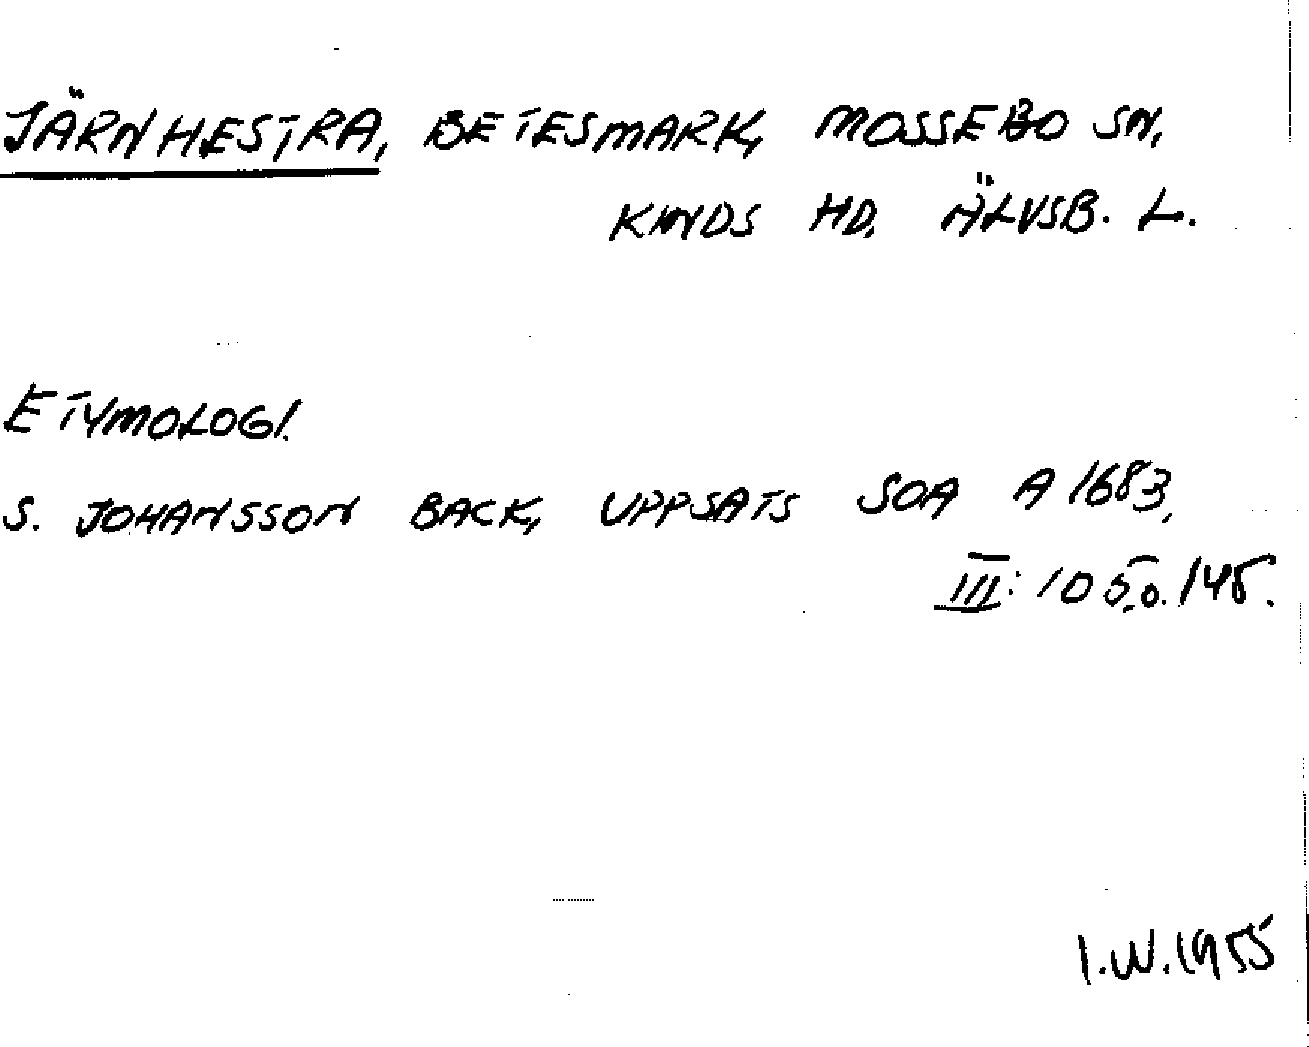 JÄRNHESTRA, BETESMARK, MOSSEBO SN,
KINDS HD, ÄLVSB. L.
ETYMOLOGI.
S. JOHANSSON BACK, UPPSATS SOA A 1683,
III: 10 5, o. 145.
I.W. 1955